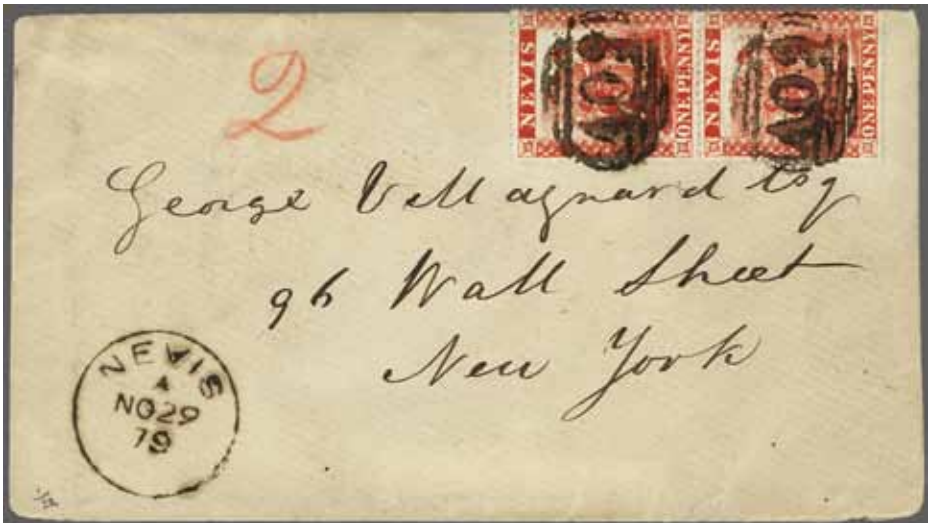 NEVIS ONE PENNY NEVIS ONE PENNY
A09 A09
2
George Vellagnard Esq
96 Wall Street
New York
NEVIS
A
NO 29
79